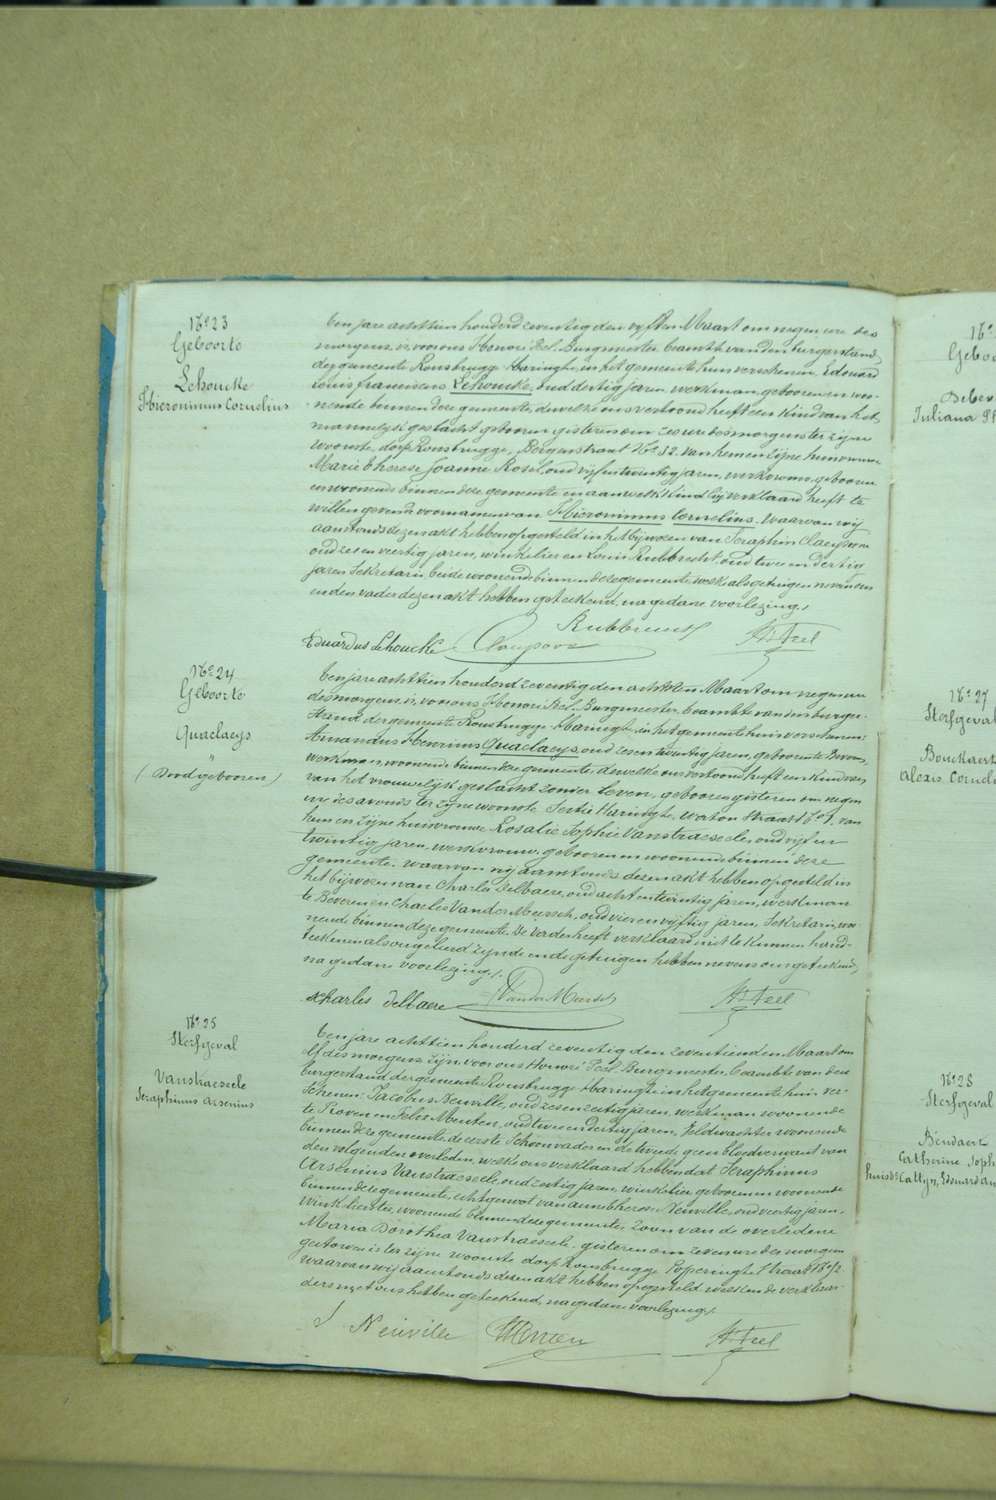 N° 23
Geboorte
Lehoucke
Hieronimus Cornelius
Ten jare achttien honderd zeventig den vyftien Maart om negen ure des
morgens, is voor ons Honoré Feel, Burgmeester, beambte van den burgerstand
der gemeente Rousbrugge Haringhe, in het gemeentehuis verschenen, Edouard
Louis Franciscus Lehoucke, oud dertig jaren, werkman, geboren en woo-
nende binnen deze gemeente, dewelke ons vertoond heeft een kind van het
mannelyk geslacht geboren gisteren om zes ure des morgens ter zyne
woonste, dorp Rousbrugge, Bergenstraat N° 32, van hem en zyne huisvrouw
Marie Therese Joanne Rosel, oud vyf en twintig jaren, werkvrouw, geboren
en woonende binnen deze gemeente en aan welk kind hy verklaard heeft te
willen geven de voornamen van Hieronimus Cornelius. Waarvan wij
aanstonds dezen akt hebben opgesteld in het bijwezen van Seraphin Claeysoon
oud zes en veertig jaren, winkelier en Louis Rubbrecht, oud twee en dertig
jaren Sekretaris beide woonende binnen deze gemeente welke als getuigen nevens ons
en den vader dezen akt hebben geteekend, na gedane voorlezing.
Eduardus Lehoucke Rubbrecht Hré Feel
N° 24
Geboorte
Quaclaeys
"
(Doodgebooren)
Ten jare achttien honderd zeventig den achtsten Maart om negen ure
des morgens, is voor ons Honoré Feel, Burgmeester, beambte van den burger-
stand der gemeente Rousbrugge Haringhe, in het gemeentehuis verschenen:
Amandus Henricus Quaclaeys, oud zes en twintig jaren, geboren te Beveren,
werkman, woonende binnen deze gemeente, dewelke ons vertoond heeft een kind van
van het vrouwelyk geslacht zonder leven, geboren gisteren om negen
ure des avonds ter zyne woonste Sectie Haringhe, Waton straat N° 1, van
hem en zyne huisvrouwe Rosalie Sophie Vanstraeseele, oud vyf en
twintig jaren, werkvrouw, geboren en woonende binnen deze
gemeente. Waarvan wy aanstonds dezen akt hebben opgesteld in
het bijwezen van Charles Delbaere, oud acht en twintig jaren, werkman
te Beveren en Charles Van der Meersch, oud vier en vyftig jaren, Sekretaris, wo-
nende binnen deze gemeente. De Vader heeft verklaard niet te kunnen hand-
teekenen als ongeleerd zynde en de getuigen hebben nevens ons geteekend,
na gedane voorlezing.
Charles delbaere Van der Meersch Hré Feel
N° 25
Sterfgeval
Vanstraeseele
Seraphinus Arsenius
Ten jare achttien honderd zeventig den zeventienden Maart om
elf des morgens zyn voor ons Honoré Feel Burgmeester, beambte van den
burgerstand der gemeente Rousbrugge Haringhe in het gemeentehuis ver-
schenen: Jacobus Neuville, oud zes en zestig jaren, werkman woonende
te Proven en Felix Menten, oud twee en dertig jaren, Veldwachter woonende
binnen deze gemeente de eerste Schoonvader en de tweede geen bloedverwant van
den volgenden overleden, welke ons verklaard hebben dat Seraphinus
Arsenius Vanstraeseele, oud zestig jaren, winkelier, geboren en woonende
binnen deze gemeente, echtgenoot van Anne Therese Neuville, oud veertig jaren,
winkelierster, woonende binnen deze gemeente, Zoon van de overledene
Maria Dorothea Vanstraeseele, gisteren om zeven ure des morgens
gestorven is ter zyne woonste dorp Rousbrugge Poperinghe Straat
waarvan wij aanstonds dezen akt hebben opgesteld, welken de verklaar-
ders met ons hebben geteekend, na gedane voorlezing.
J Neuville Hré Feel
N°
Geboo
Debev
Juliana
N° 27
Sterfgeval
Bouckaert
Alexis Corneli
N° 28
Sterfgeval
Bendaert
Catherine Soph